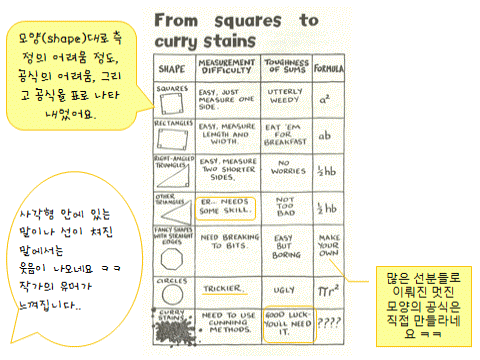 모양(shape)대로 측
정의 어려움 정도,
공식의 어려움, 그리
고 공식을 표로 나타
내었어요.
From squares to
curry stains
SHAPE MEASUREMENT DIFFICULTY TOUGHNESS OF SUMS FORMULA
SQUARES
EASY, JUST
MEASURE ONE
SIDE.
UTTERLY
WEEDY
a²
RECTANGLES
EASY, MEASURE
LENGTH AND
WIDTH.
EAT 'EM
FOR
BREAKFAST
ab
RIGHT-ANGLED
TRIANGLES
EASY, MEASURE
TWO SHORTER
SIDES.
NO
WORRIES
½hb
OTHER
TRIANGLES
ER... NEEDS
SOME SKILL.
NOT
TOO
BAD
½hb
FANCY SHAPES
WITH STRAIGHT
EDGES
NEED BREAKING
TO BITS.
EASY
BUT
BORING
MAKE
YOUR
OWN
CIRCLES
TRICKIER.
UGLY
πr²
CURRY
STAINS
NEED TO USE
CUNNING
METHODS.
GOOD LUCK-
YOU'LL NEED
IT.
????
사각형 안에 있는
말이나 선이 쳐진
말에서는
웃음이 나오네요 ㅋㅋ
작가의 유머가
느껴집니다..
많은 선분들로
이뤄진 멋진
모양의 공식은
직접 만들라네
요 ㅋㅋ